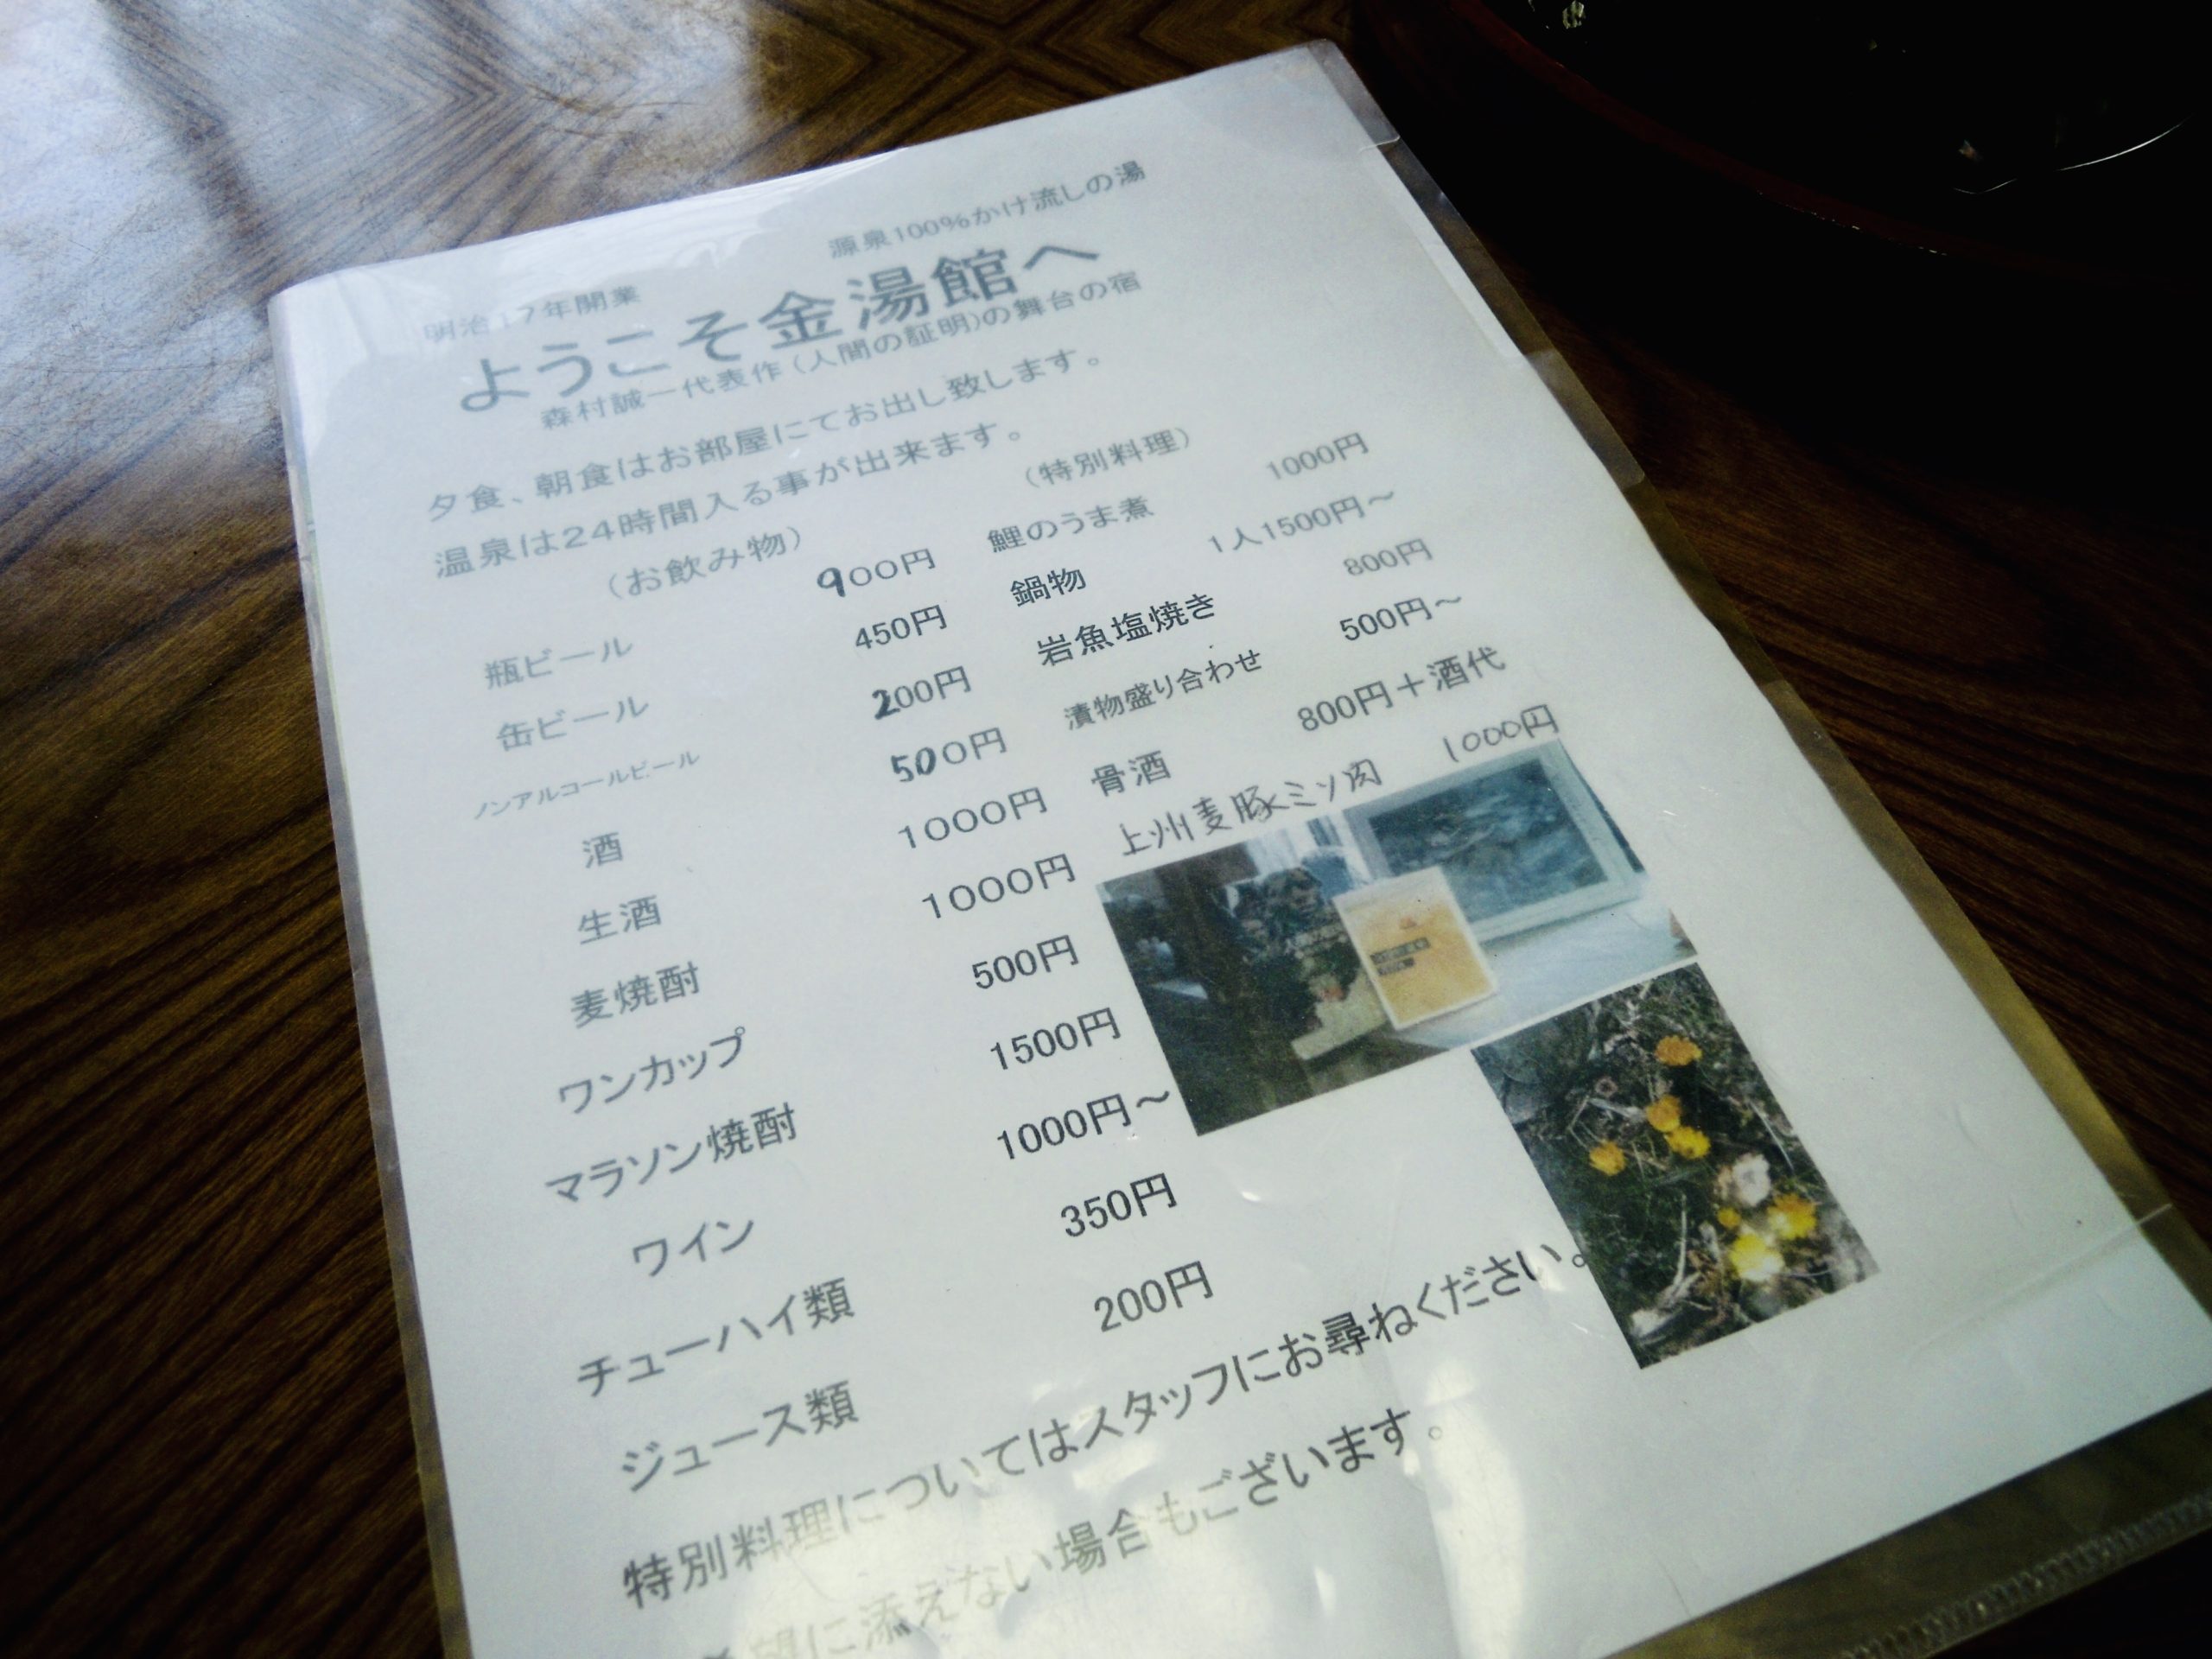 源泉100%かけ流しの湯
明治17年開業
ようこそ金湯館へ
森村誠一代表作(人間の証明)の舞台の宿
夕食、朝食はお部屋にてお出し致します。
温泉は24時間入る事が出来ます。
(お飲み物)
瓶ビール 900円
缶ビール 450円
ノンアルコールビール 200円
酒 500円
生酒 1000円
麦焼酎 1000円
ワンカップ 500円
マラソン焼酎 1500円
ワイン 1000円～
チューハイ類 350円
ジュース類 200円
(特別料理)
鯉のうま煮 1000円
鍋物 1人1500円～
岩魚塩焼き 800円
漬物盛り合わせ 500円～
骨酒 800円+酒代
上州麦豚ミソ肉 1000円
特別料理についてはスタッフにお尋ねください。
望に添えない場合もございます。